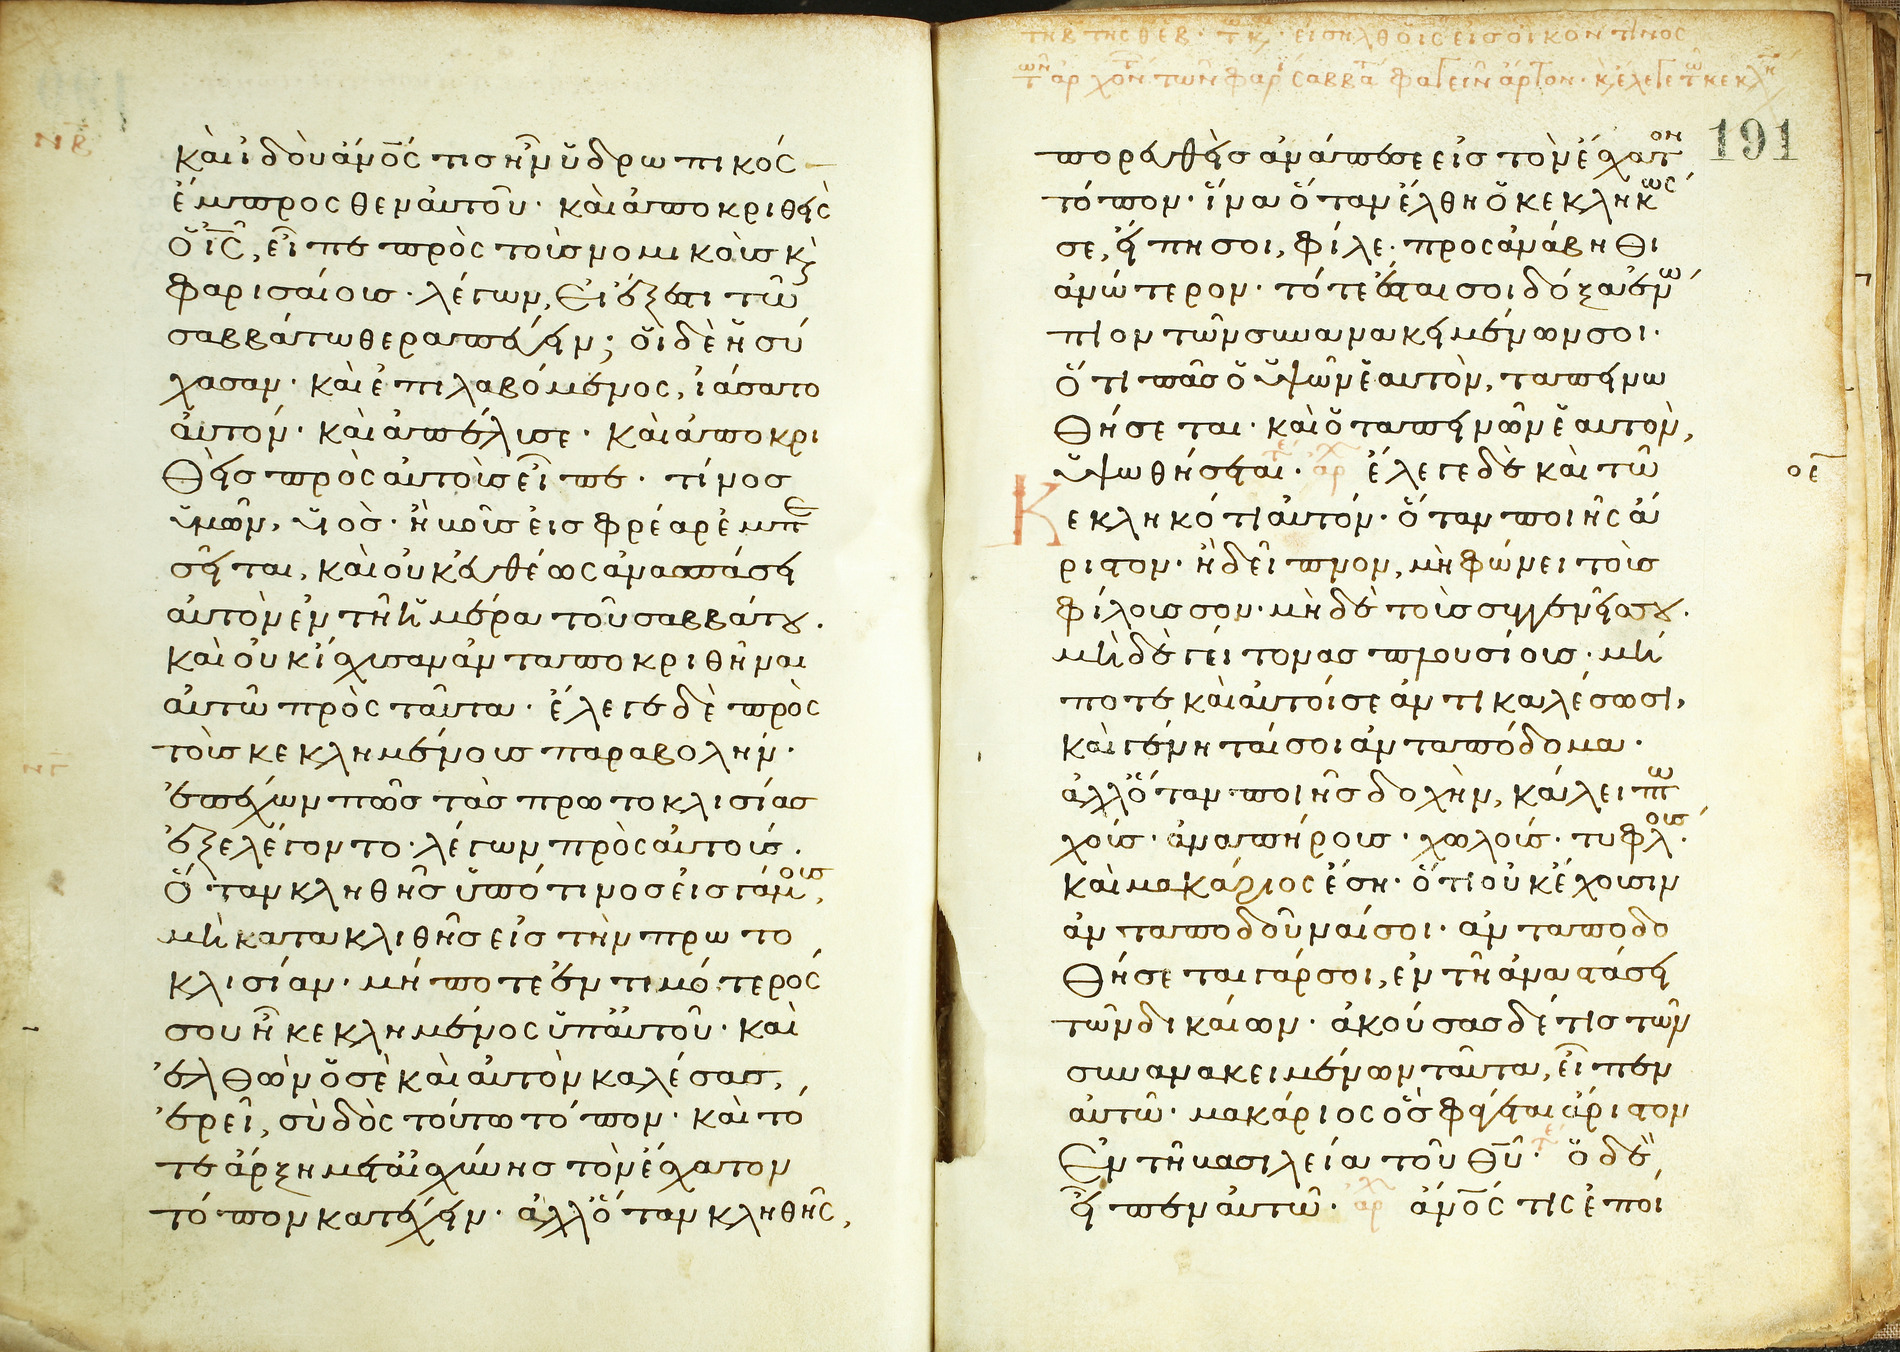 καὶ ἰδοὺ ἄνος τισ ἦν ὑδρωπικός
ἔμπροσθεν αὐτοῦ· καὶ ἀποκριθεὶς
ὁ ις, εἶπε πρὸς τοὺσ νομικοὺσ κὶ
φαρισαίουσ· λέγων, εἰ ἔξεστι τῶ
σαββάτω θεραπεύειν; οἱ δὲ ἡσύ
χασαν· καὶ ἐπιλαβόμενος, ἰάσατο
αὐτόν· καὶ ἀπέλυσε· καὶ ἀποκρι
θεὶσ πρὸς αὐτοὺσ εἶπε· τίνοσ
ὑμῶν, υἱοσ· ἢ βοῦσ εἰσ φρέαρ ἐμπε
σεῖται, καὶ οὐκ εὐθέως ἀνασπάσει
αὐτὸν ἐν τῆ ἡμέρα τοῦ σαββάτου.
καὶ οὐκ ἴσχυσαν ἀνταποκριθῆναι
αὐτῶ πρὸς ταῦτα· ἔλεγε δὲ πρὸς
τοὺσ κεκλημένουσ παραβολήν·
ἐπέχων πῶσ τὰσ πρωτοκλισίασ
ἐξελέγοντο· λέγων πρὸς αὐτούσ.
ὅταν κληθῆσ ὑπό τινοσ εἰσ γάμουσ,
μὴ κατακλιθῆσ εἰσ τὴν πρωτο
κλισίαν· μήποτε ἐντιμότερός
σου ἦ κεκλημένος ὑπ' αὐτοῦ· καὶ
ἐλθὼν ὁ σὲ καὶ αὐτὸν καλέσασ,
ἐρεῖ, σὺ δὸς τούτω τόπον· καὶ τό
τε ἄρξη μετ' αἰσχύνησ τὸν ἔσχατον
τόπον κατέχειν· ἀλλ' ὅταν κληθῆς,
τη β της θ εβ· τω κ· εισηλθ ο ις εις οικον τινος
των αρχον των φαρ σαββατ φαγειν αρτον· κ ελεγε τ κεκλη
191
πορευθεὶσ ἀνάπεσε εἰσ τὸν ἔσχατον
τόπον· ἵνα ὅταν ἔλθη ὁ κεκληκώς
σε, εἴπη σοι, φίλε· προσανάβηθι
ἀνώτερον· τότε ἔσται σοι δόξα ἐνώ
πιον τῶν συνανακειμένων σοι·
ὅτι πᾶσ ὁ ὑψῶν ἑαυτὸν, ταπεινω
θήσεται· καὶ ὁ ταπεινῶν ἑαυτὸν,
ὑψωθήσεται. τε αρχ ἔλεγε δὲ καὶ τῶ
κεκληκότι αὐτόν· ὅταν ποιῆς ἄ
οε
ριστον· ἢ δεῖπνον, μὴ φώνει τοὺσ
φίλουσ σου· μὴ δὲ τοὺσ συγγενεῖσ σου.
μὴ δὲ γείτονασ πλουσίουσ· μή
ποτε καὶ αὐτοί σε ἀντικαλέσωσι,
καὶ γένηταί σοι ἀνταπόδομα·
ἀλλ' ὅταν ποιῆσ δοχὴν, κάλει πτω
χούσ· ἀναπήρουσ· χωλούσ· τυφλούσ.
καὶ μακάριος ἔση· ὅτι οὐκ ἔχουσιν
ἀνταποδοῦναί σοι· ἀνταποδο
θήσεται γάρ σοι, ἐν τῆ ἀναστάσει
τῶν δικαίων· ἀκούσασ δέ τισ τῶν
συνανακειμένων ταῦτα, εἶπεν
αὐτῶ· μακάριος ὃσ φάγεται ἄριστον
ἐν τῆ βασιλεία τοῦ θυ· τε ὁ δὲ,
εἶπεν αὐτῶ· αρχ ἄνος τις ἐποί